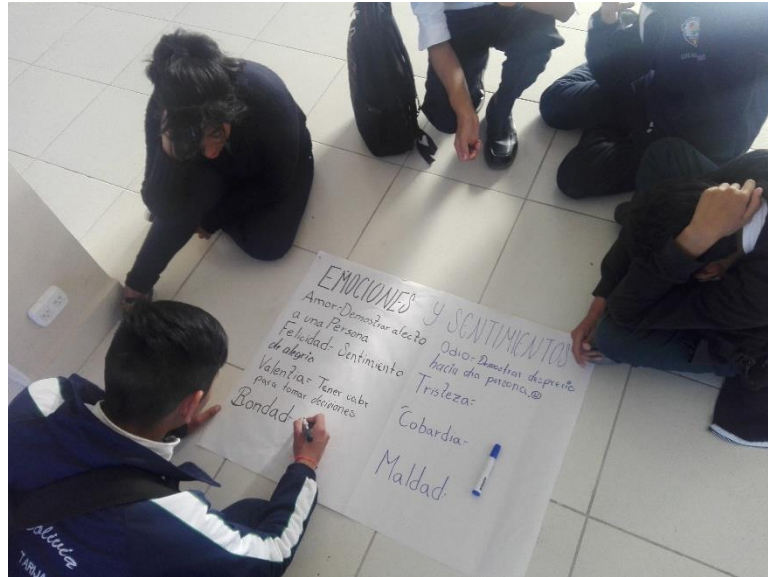 EMOCIONES Y SENTIMIENTOS
Amor= Demostrar afecto
a una Persona
Felicidad- Sentimiento
de alegria
Valentia= Tener valor
para tomar deciciones
Bondad-
Odio= Demostrar desprecio
hacia otra persona.
Tristeza=
Cobardia-
Maldad-
olivia
TARIJA